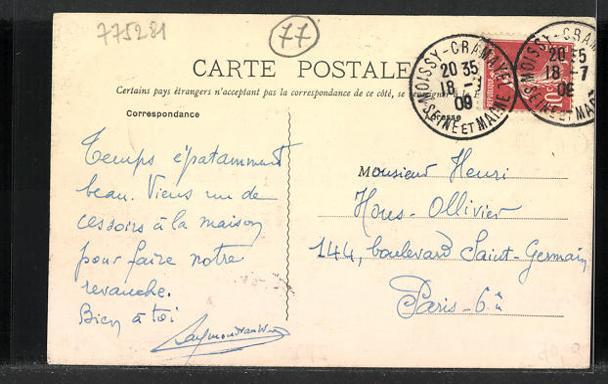 775281
77
CARTE POSTALE
Certains pays étrangers n'acceptant pas la correspondance de ce côté, se
MOISSY-CRAMAYEL
20 35
18 -7
09
SEINE ET MARNE
MOISSY-CRAM
20 35
18 -7
09
SEINE ET MAR
10
Correspondance
Adresse
Temps épatamment
beau. Viens un de
ces soirs à la maison
pour faire notre
revanche.
Bien à toi
Monsieur Henri
Hous-Ollivier
144, boulevard Saint-Germain
Paris-6è